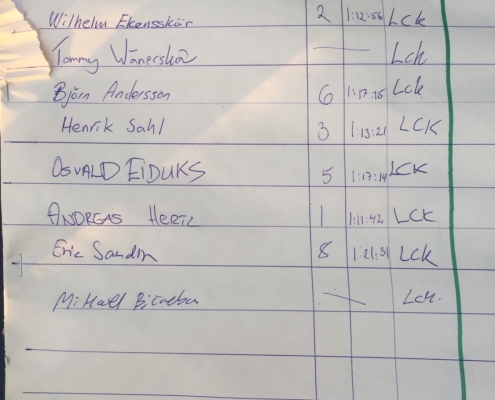 Wilhelm Ekensskär 2 1:12:56 LCK
Tommy Wänerskä — Lck
Björn Andersson 6 1:17:15 Lck
Henrik Sahl 3 1:13:21 LCK
OSVALD EIDUKS 5 1:17:14 LCK
ANDREAS HERTZ 1 1:11:42 LCK
Eric Sandin 8 1:21:31 LCK
Mikael — LCK.